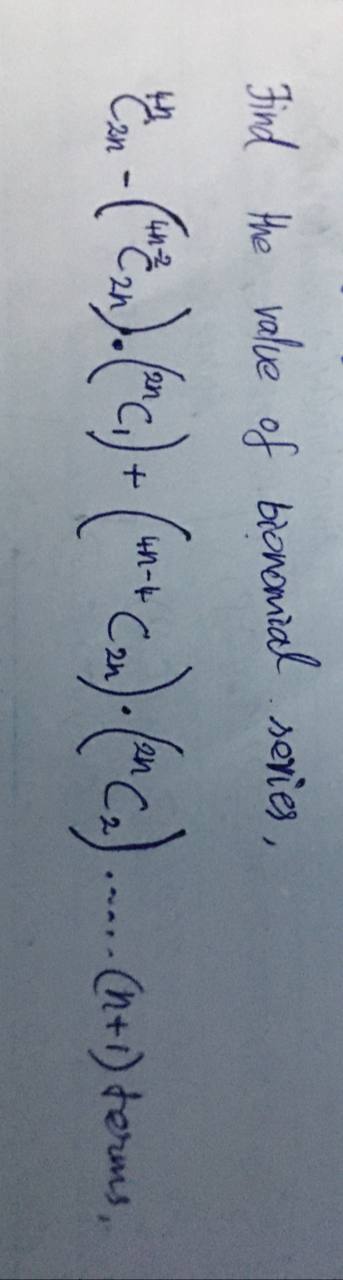 Find the value of bionomial series,
⁴ⁿC₂ₙ - (⁴ⁿ⁻²C₂ₙ)·(²ⁿC₁) + (⁴ⁿ⁻⁴C₂ₙ)·(²ⁿC₂) ..... (n+1) terms,